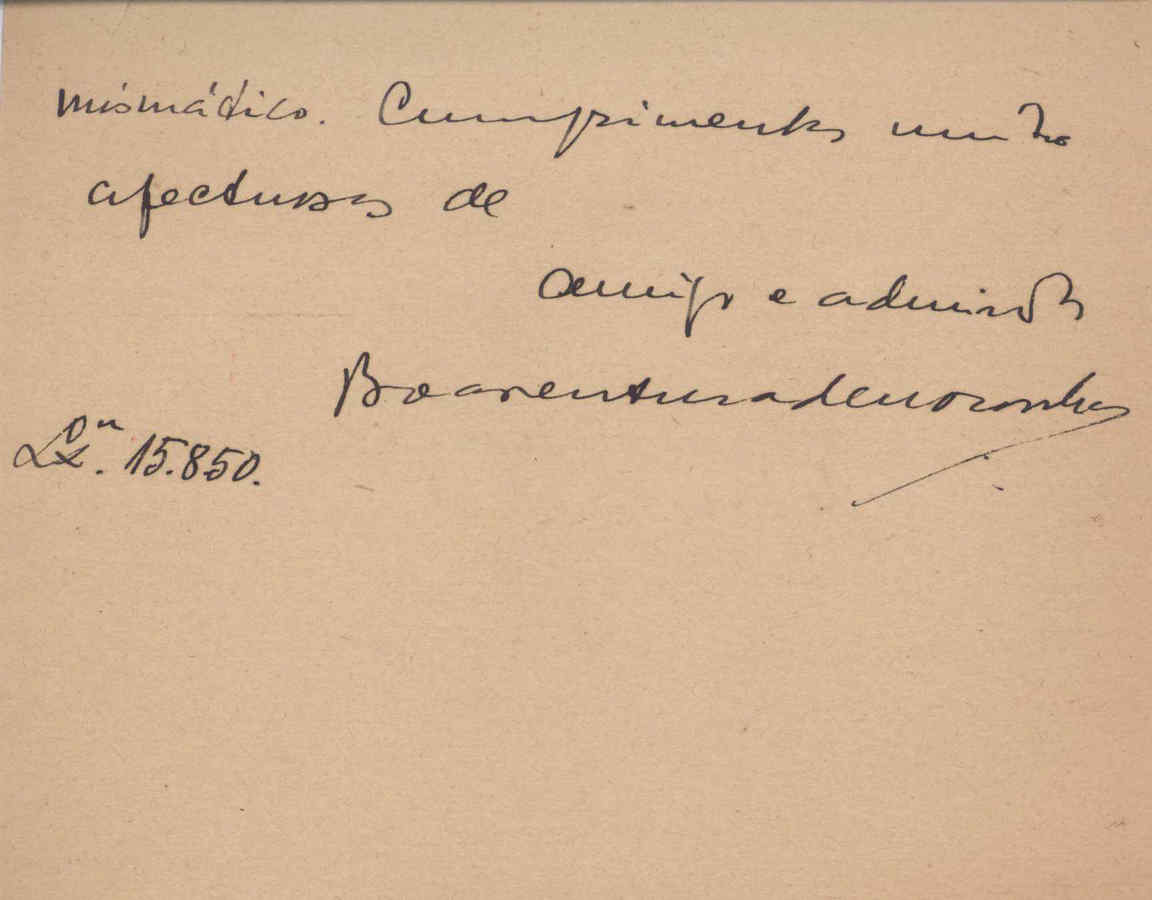 mismático. Cumprimentos muito
afectuosos de
amigo e admirador
Boaventura de Noronha
Lxª. 15.850.